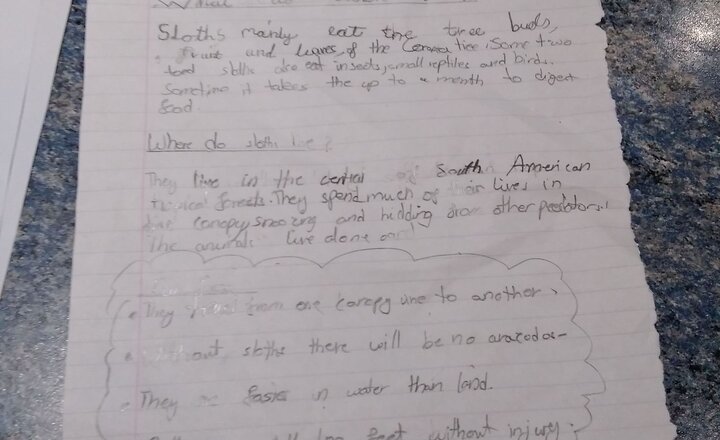 What do
Sloths mainly eat the tree buds,
fruit and leaves of the tree. Some two
toed sloths are eat insects, small reptiles and birds.
Sometime it takes the up to a month to digest
food
Where do sloths live?
They live in the central of South American
forests. They spend much of their lives in
canopy snoozing and hidding other
The animals live alone
They from one canopy to another.
sloths there will be no avacodos-
They faster in water than land.
feet without injury.